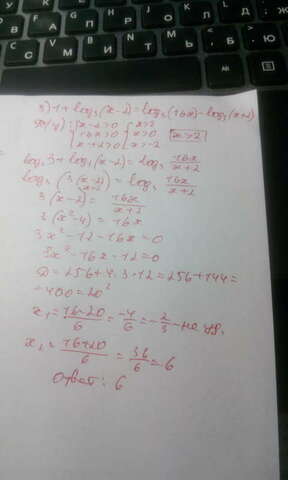 3) 1+log₃(x-2)=log₃(16x)-log₃(x+2)
x-2>0 x>2
16x>0 x>0 x>2
x+2>0 x>-2
log₃3+log₃(x-2)=log₃ 16x/(x+2)
log₃(3(x-2))=log₃ 16x/(x+2)
3(x-2)=16x/(x+2)
3(x²-4)=16x
3x²-12-16x=0
3x²-16x-12=0
D=256+4·3·12=256+144=
=400=20²
x₁=(16-20)/6=-4/6=-2/3-не уд.
x₂=(16+20)/6=36/6=6
Ответ: 6